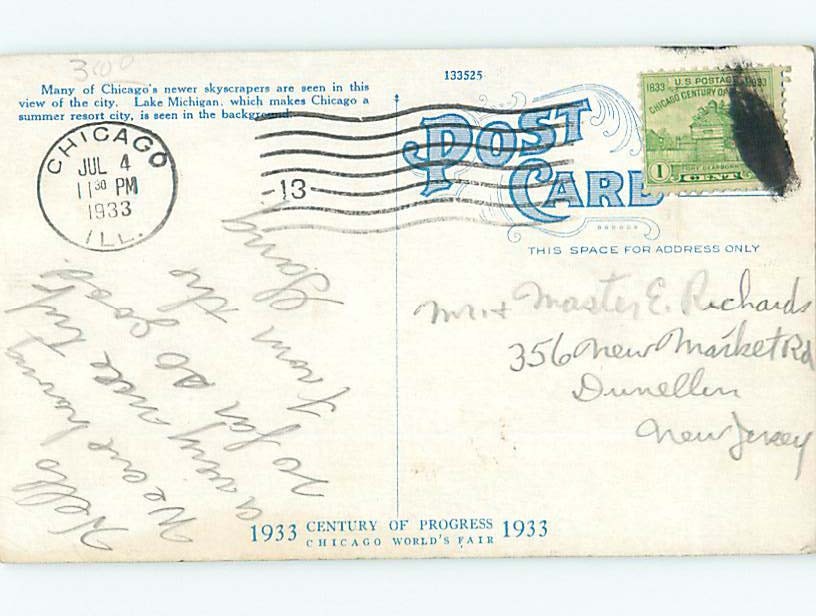 300
Many of Chicago's newer skyscrapers are seen in this
view of the city. Lake Michigan, which makes Chicago a
summer resort city, is seen in the background.
133525
CHICAGO
JUL 4
11 30 PM
1933
ILL.
-13-
POST
CARD
1833 U.S. POSTAGE 1933
CHICAGO CENTURY OF
FORT DEARBORN
1 CENT
THIS SPACE FOR ADDRESS ONLY
Mr. & Master E. Richards
356 New Market Rd
Dunellen
New Jersey
Hello
We are having
a very nice trip
so far so good.
From the
Gang
1933 CENTURY OF PROGRESS 1933
CHICAGO WORLD'S FAIR